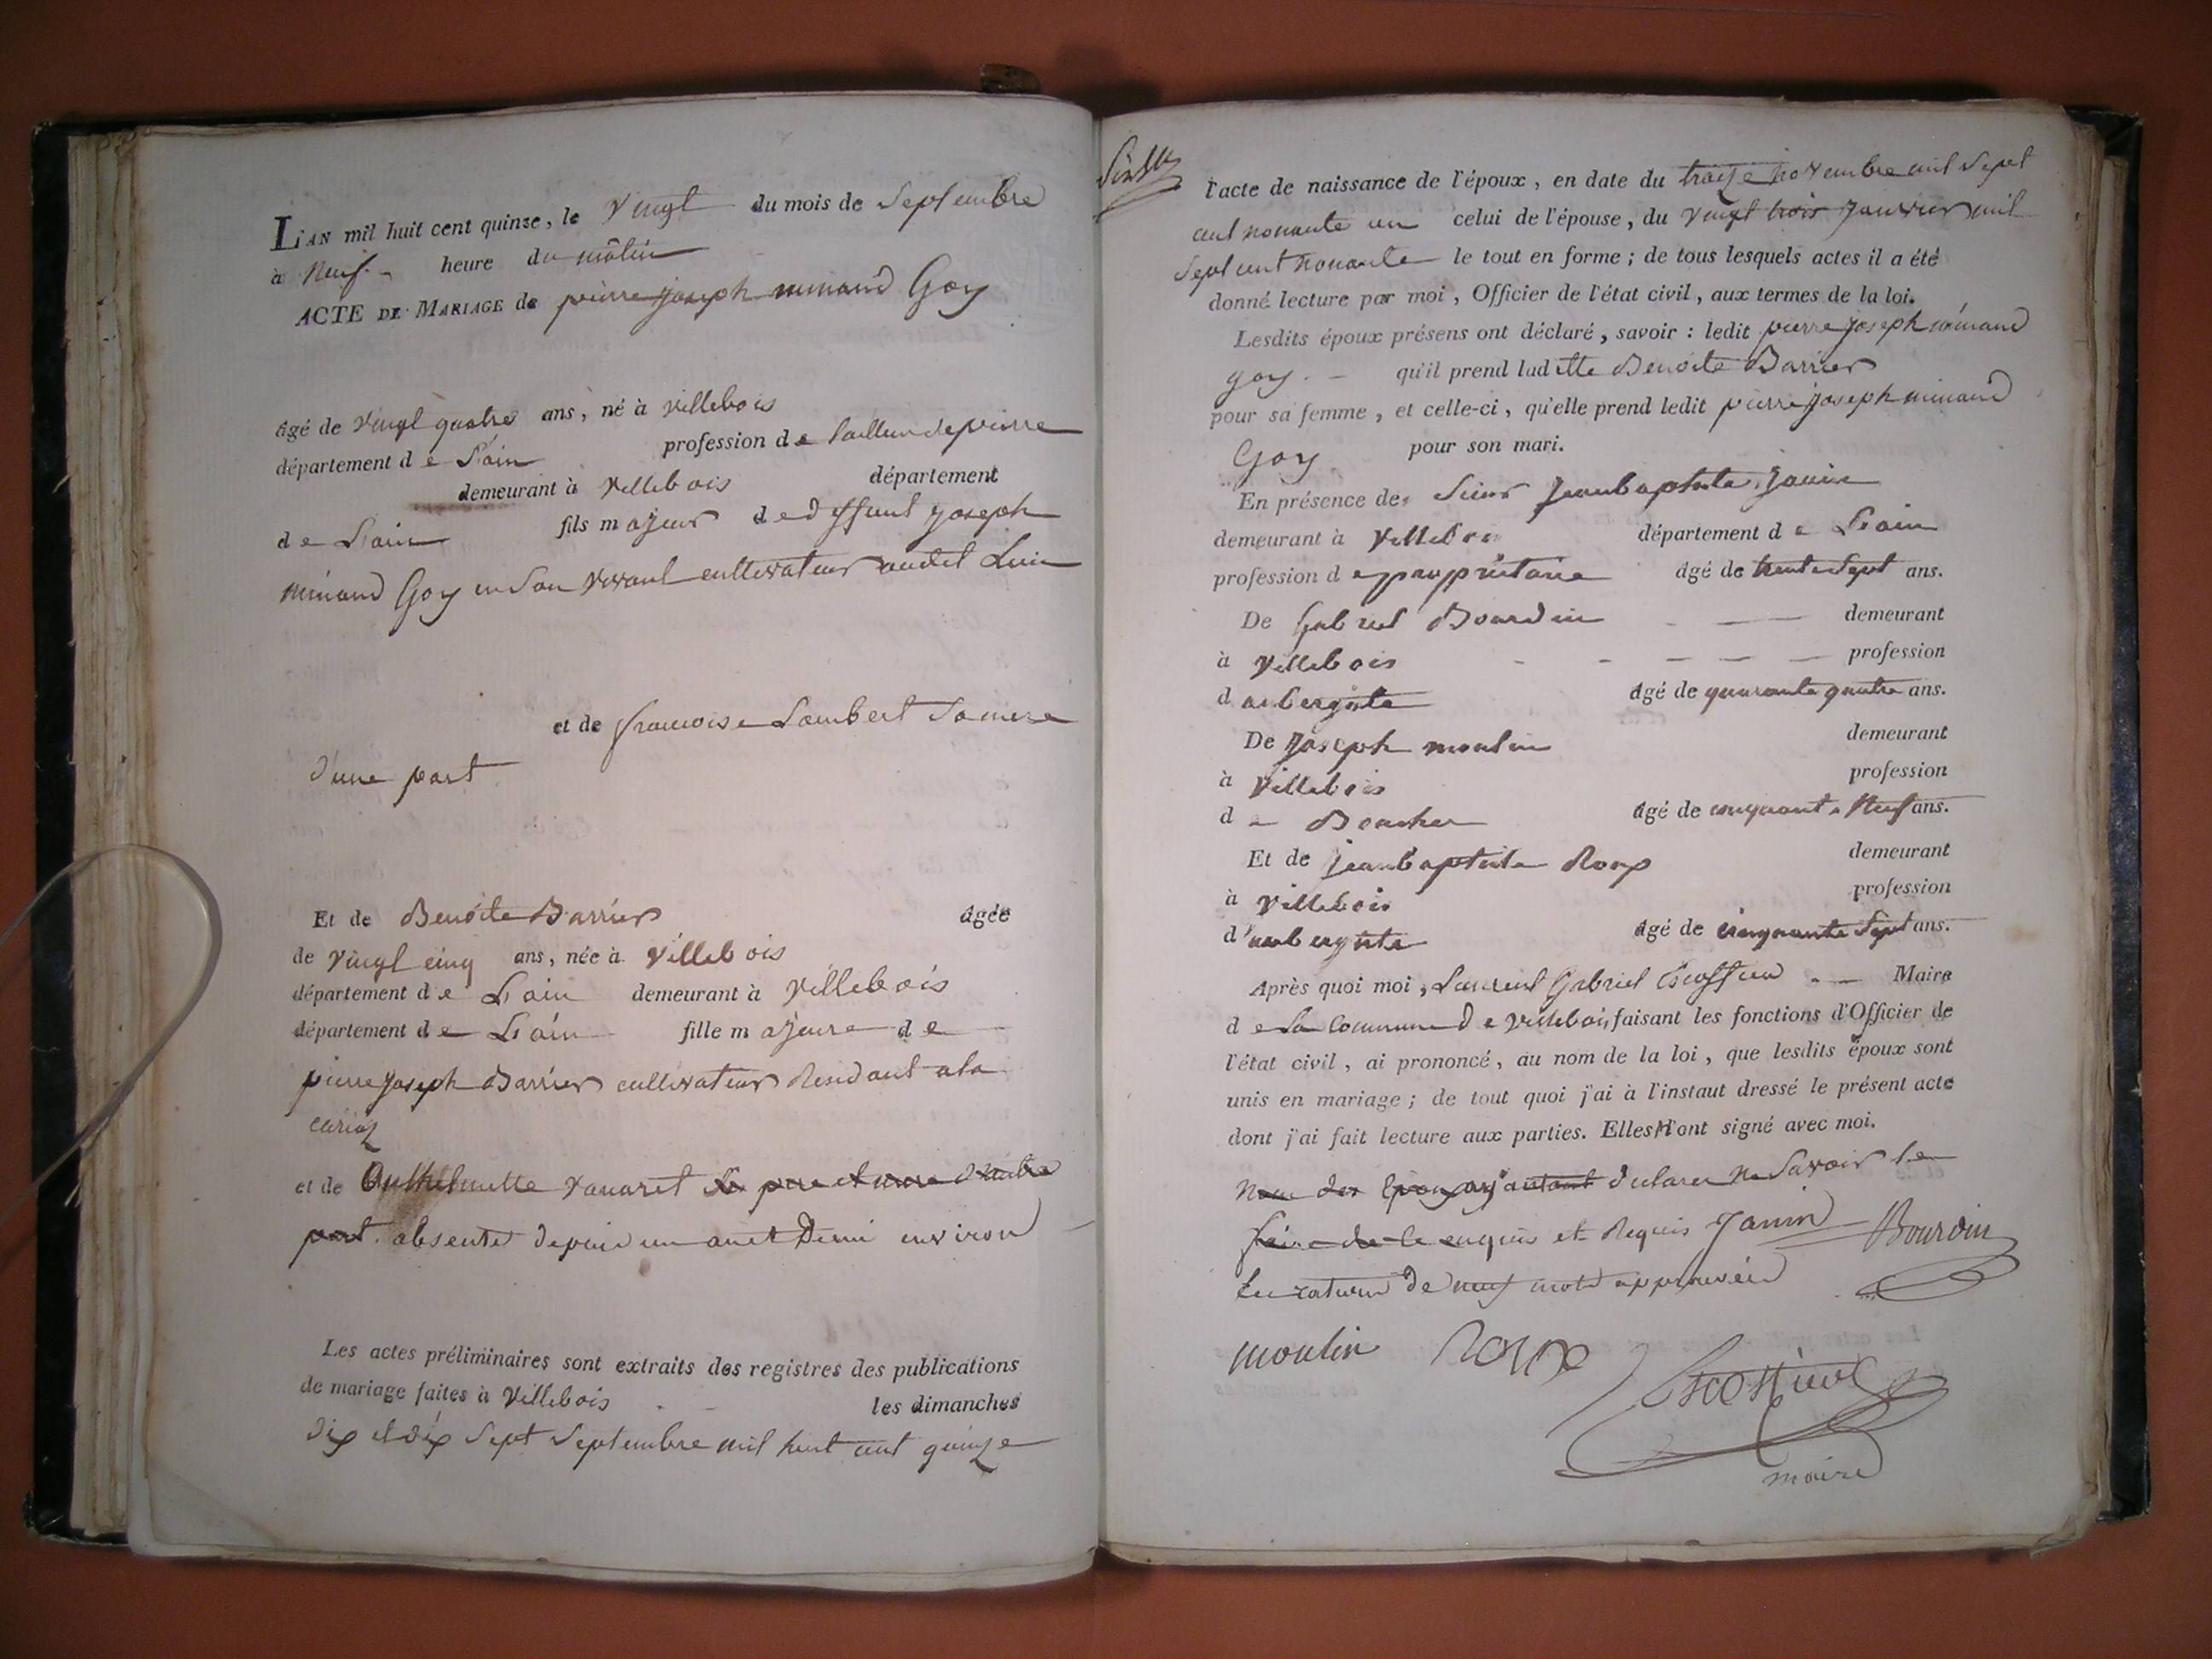 L'AN mil huit cent quinze, le vingt du mois de Septembre
à Neuf heure du mâtin
ACTE DE MARIAGE de pierre joseph minand Goy
âgé de vingt quatre ans, né à villebois
département de L'ain profession de tailleur de pierre
demeurant à villebois département
de L'ain fils majeur de deffunt joseph
minand Goy en son vivant cultivateur audit Lieu
et de francoise Lambert Sa mere
d'une part
Et de Benoite Barrier âgée
de vingt cinq ans, née à villebois
département de L'ain demeurant à villebois
département de L'ain fille majeure de
pierre joseph Barrier cultivateur Residant a la
et de Anthelmette vanaret Les pere et mere d'autre
part. absente depuis un an et Demi environ
Les actes préliminaires sont extraits des registres des publications
de mariage faites à villebois les dimanches
dix et dix sept Septembre mil huit cent quinze
l'acte de naissance de l'époux, en date du traize novembre mil Sept
cent nonante un celui de l'épouse, du vingt trois janvier mil
Sept cent nonante le tout en forme; de tous lesquels actes il a été
donné lecture par moi, Officier de l'état civil, aux termes de la loi.
Lesdits époux présens ont déclaré, savoir : ledit pierre joseph minand
goy. qu'il prend laditte Benoite Barrier
pour sa femme, et celle-ci, qu'elle prend ledit pierre joseph minand
Goy pour son mari.
En présence de Sieur jean baptiste janin
demeurant à villebois département de L'ain
profession de propriétaire âgé de trente Sept ans.
De Gabriel Bourdin demeurant
à villebois profession
d'aubergiste âgé de quarante quatre ans.
De joseph moulin demeurant
à villebois profession
de Boucher âgé de cinquante Neuf ans.
Et de jean baptiste Roux demeurant
à villebois profession
d'aubergiste âgé de cinquante Sept ans.
Après quoi moi, Laurent Gabriel Escoffier Maire
de La Commune de villebois, faisant les fonctions d'Officier de
l'état civil, ai prononcé, au nom de la loi, que lesdits époux sont
unis en mariage; de tout quoi j'ai à l'instant dressé le présent acte
dont j'ai fait lecture aux parties. Elles N'ont signé avec moi.
Non des Epoux ayant declarer ne Savoir le
faire de ce enquis et Requis Janin Bourdin
Les ratures de neuf mots approuvées
moulin Roux
maire